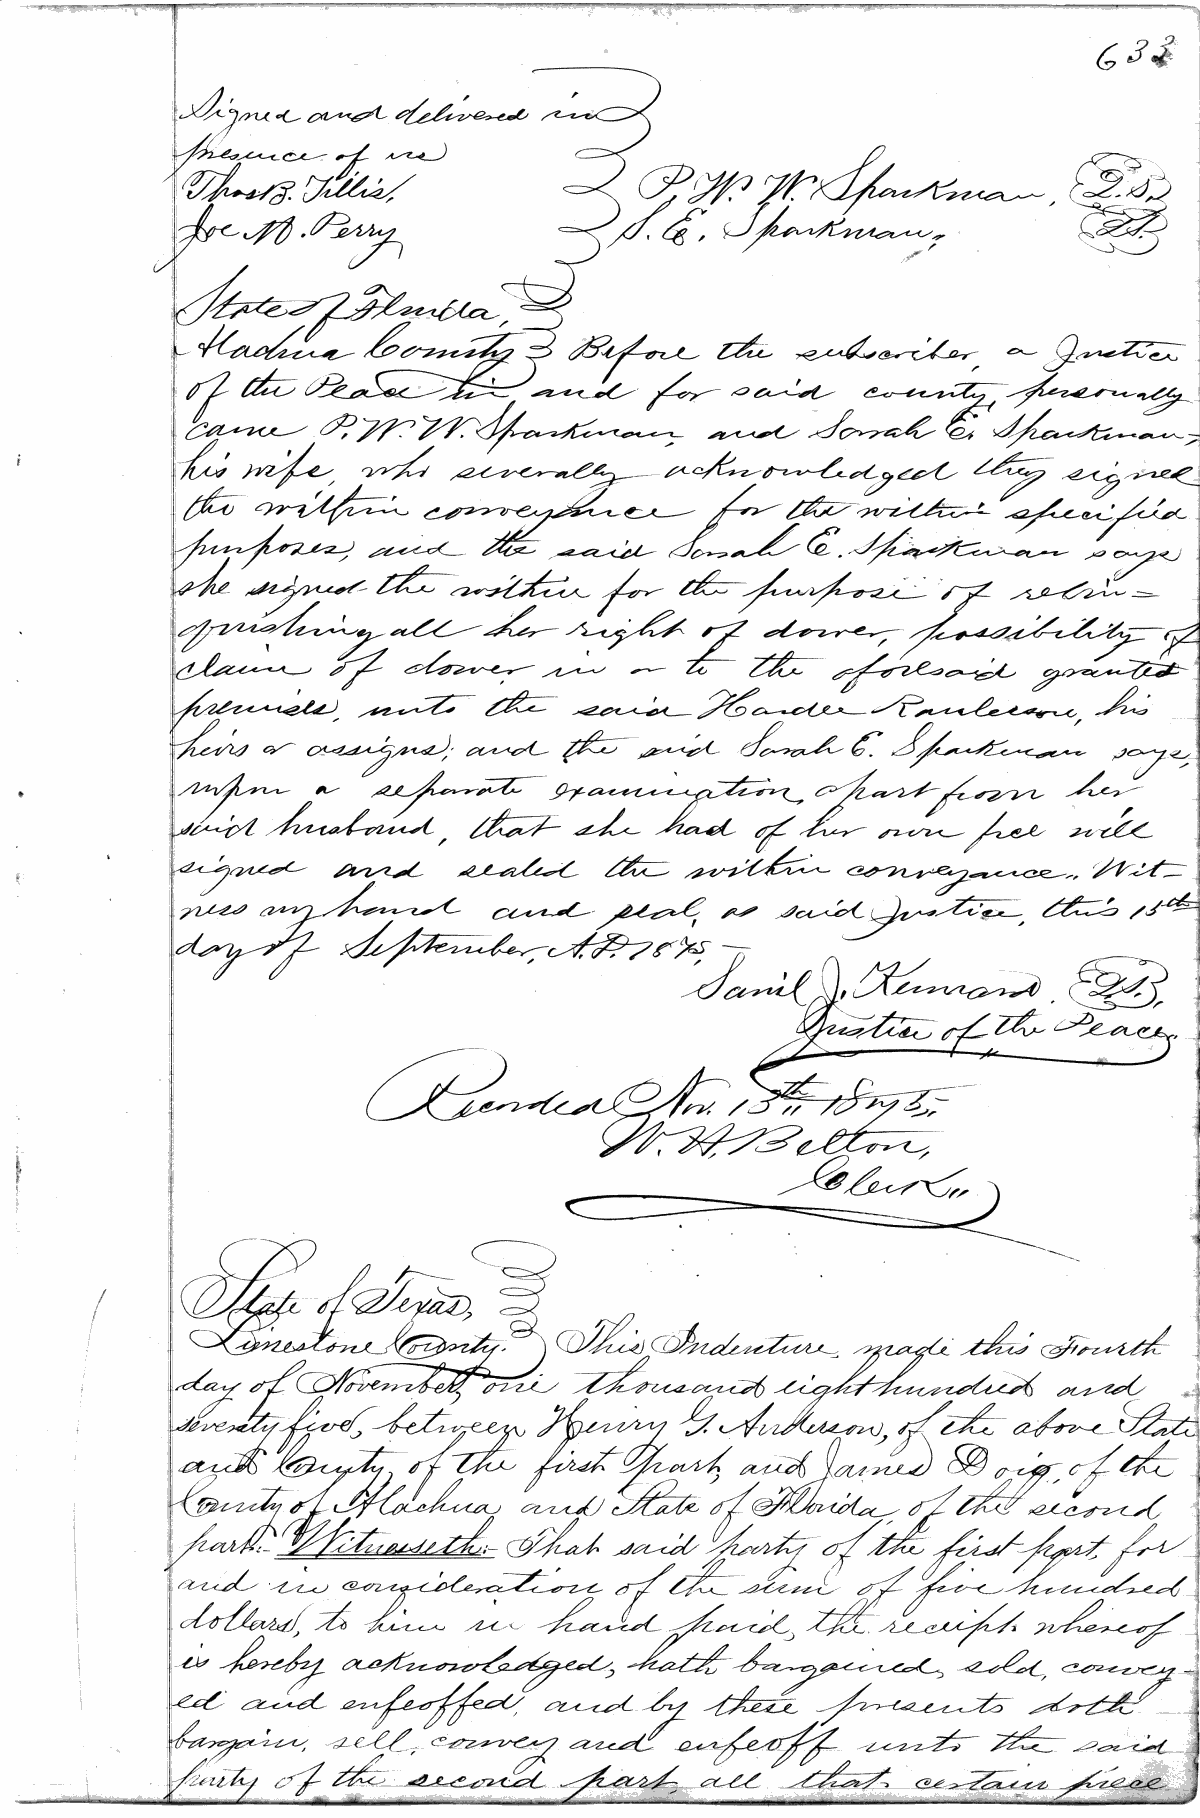 633
Signed and delivered in
presence of us
Thos B. Tillis, P. W. W. Sparkman, L.S.
Joe M. Perry S. E. Sparkman, L.S.
State of Florida,
Alachua County Before the subscriber, a Justice
of the Peace in and for said county, personally
came P. W. W. Sparkman, and Sarah E. Sparkman,
his wife, who severally acknowledged they signed
the within conveyance for the within specified
purposes, and the said Sarah E. Sparkman says
she signed the within for the purpose of relin=
quishing all her right of dower, possibility of
claim of dower in or to the aforesaid granted
premises, unto the said Hardee Raulerson, his
heirs or assigns; and the said Sarah E. Sparkman says,
upon a separate examination, apart from her
said husband, that she had of her own free will
signed and sealed the within conveyance. Wit-
ness my hand and seal, as said Justice, this 15th
day of September, A.D. 1875,
Saml J. Kennard. L.S.
Justice of the Peace.
Recorded Nov. 15th 1875.
W. H. Belton,
Clerk
State of Texas,
Limestone County. This Indenture, made this Fourth
day of November, one thousand eight hundred and
seventy five, between Henry G. Anderson, of the above State
and County, of the first part, and James Doig, of the
County of Alachua and State of Florida, of the second
part:- Witnesseth:- That said party of the first part, for
and in consideration of the sum of five hundred
dollars, to him in hand paid, the receipt whereof
is hereby acknowledged, hath bargained, sold, convey-
ed and enfeoffed, and by these presents doth
bargain, sell, convey and enfeoff unto the said
party of the second part, all that certain piece